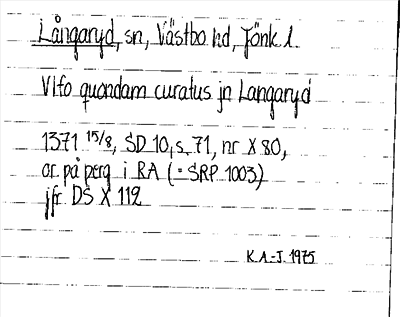 Långaryd, sn, Västbo hd, Jönk l.
Vlfo quondam curatus jn Langaryd
1371 15/8, SD 10, s. 71, nr X 80,
or. på perg i RA (= SRP 1003)
jfr DS X 112
K.A.-J. 1975